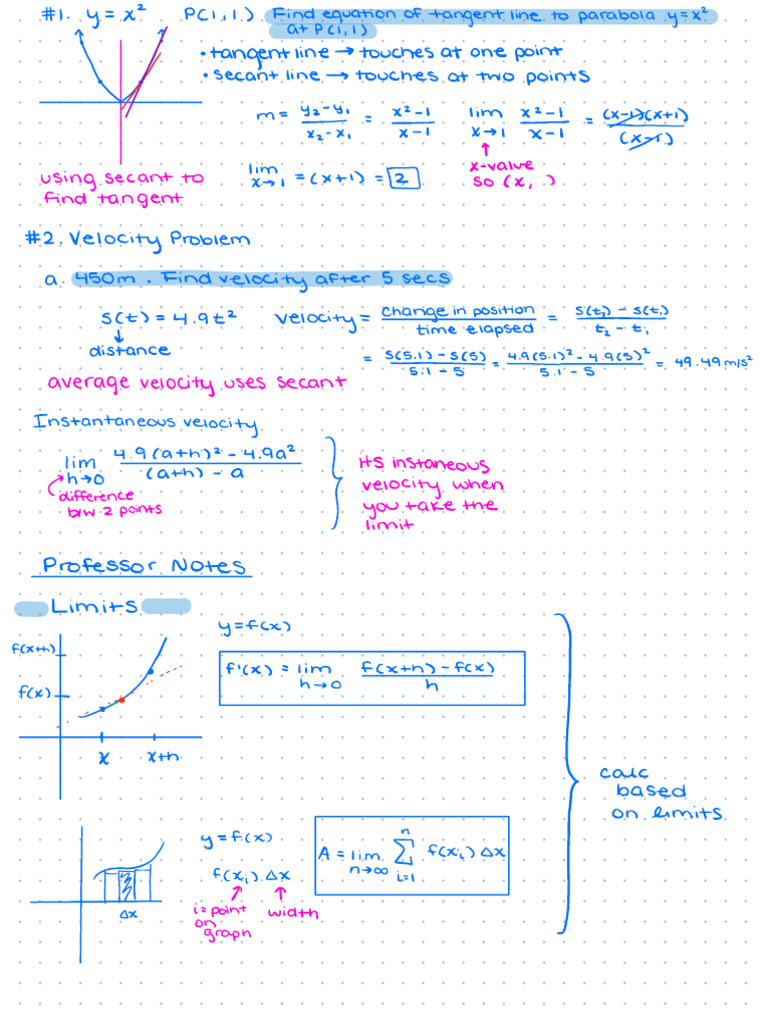 #1. y = x² P(1,1) Find equation of tangent line to parabola y=x²
at P(1,1)
• tangent line → touches at one point
• secant line → touches at two points
m = (y₂-y₁)/(x₂-x₁) = (x²-1)/(x-1) lim x→1 (x²-1)/(x-1) = ((x-1)(x+1))/(x-1)
lim x→1 = (x+1) = 2
↑
x-value
so (x, )
using secant to
find tangent
#2. Velocity Problem
a. 450m. Find velocity after 5 secs
s(t) = 4.9t² velocity = change in position/time elapsed = (s(t₂) - s(t₁))/(t₂ - t₁)
↓
distance
= (s(5.1) - s(5))/(5.1 - 5) = (4.9(5.1)² - 4.9(5)²)/(5.1 - 5) = 49.49 m/s²
average velocity uses secant
Instantaneous velocity
lim h→0 (4.9(a+h)² - 4.9a²)/((a+h) - a)
difference
btw 2 points
its instaneous
velocity when
you take the
limit
Professor Notes
Limits
f(x+h)
f(x)
x x+h
y=f(x)
f'(x) = lim h→0 (f(x+h) - f(x))/h
calc
based
on limits
Δx
y=f(x)
f(xᵢ).Δx
i=point
on
graph
width
A = lim n→∞ n Σ i=1 f(xᵢ) Δx